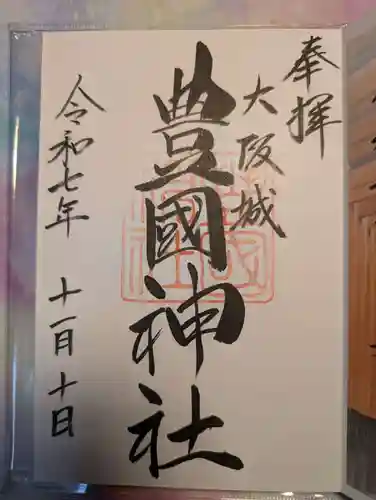 奉拝
大阪城
豊國神社
令和七年 十一月十日